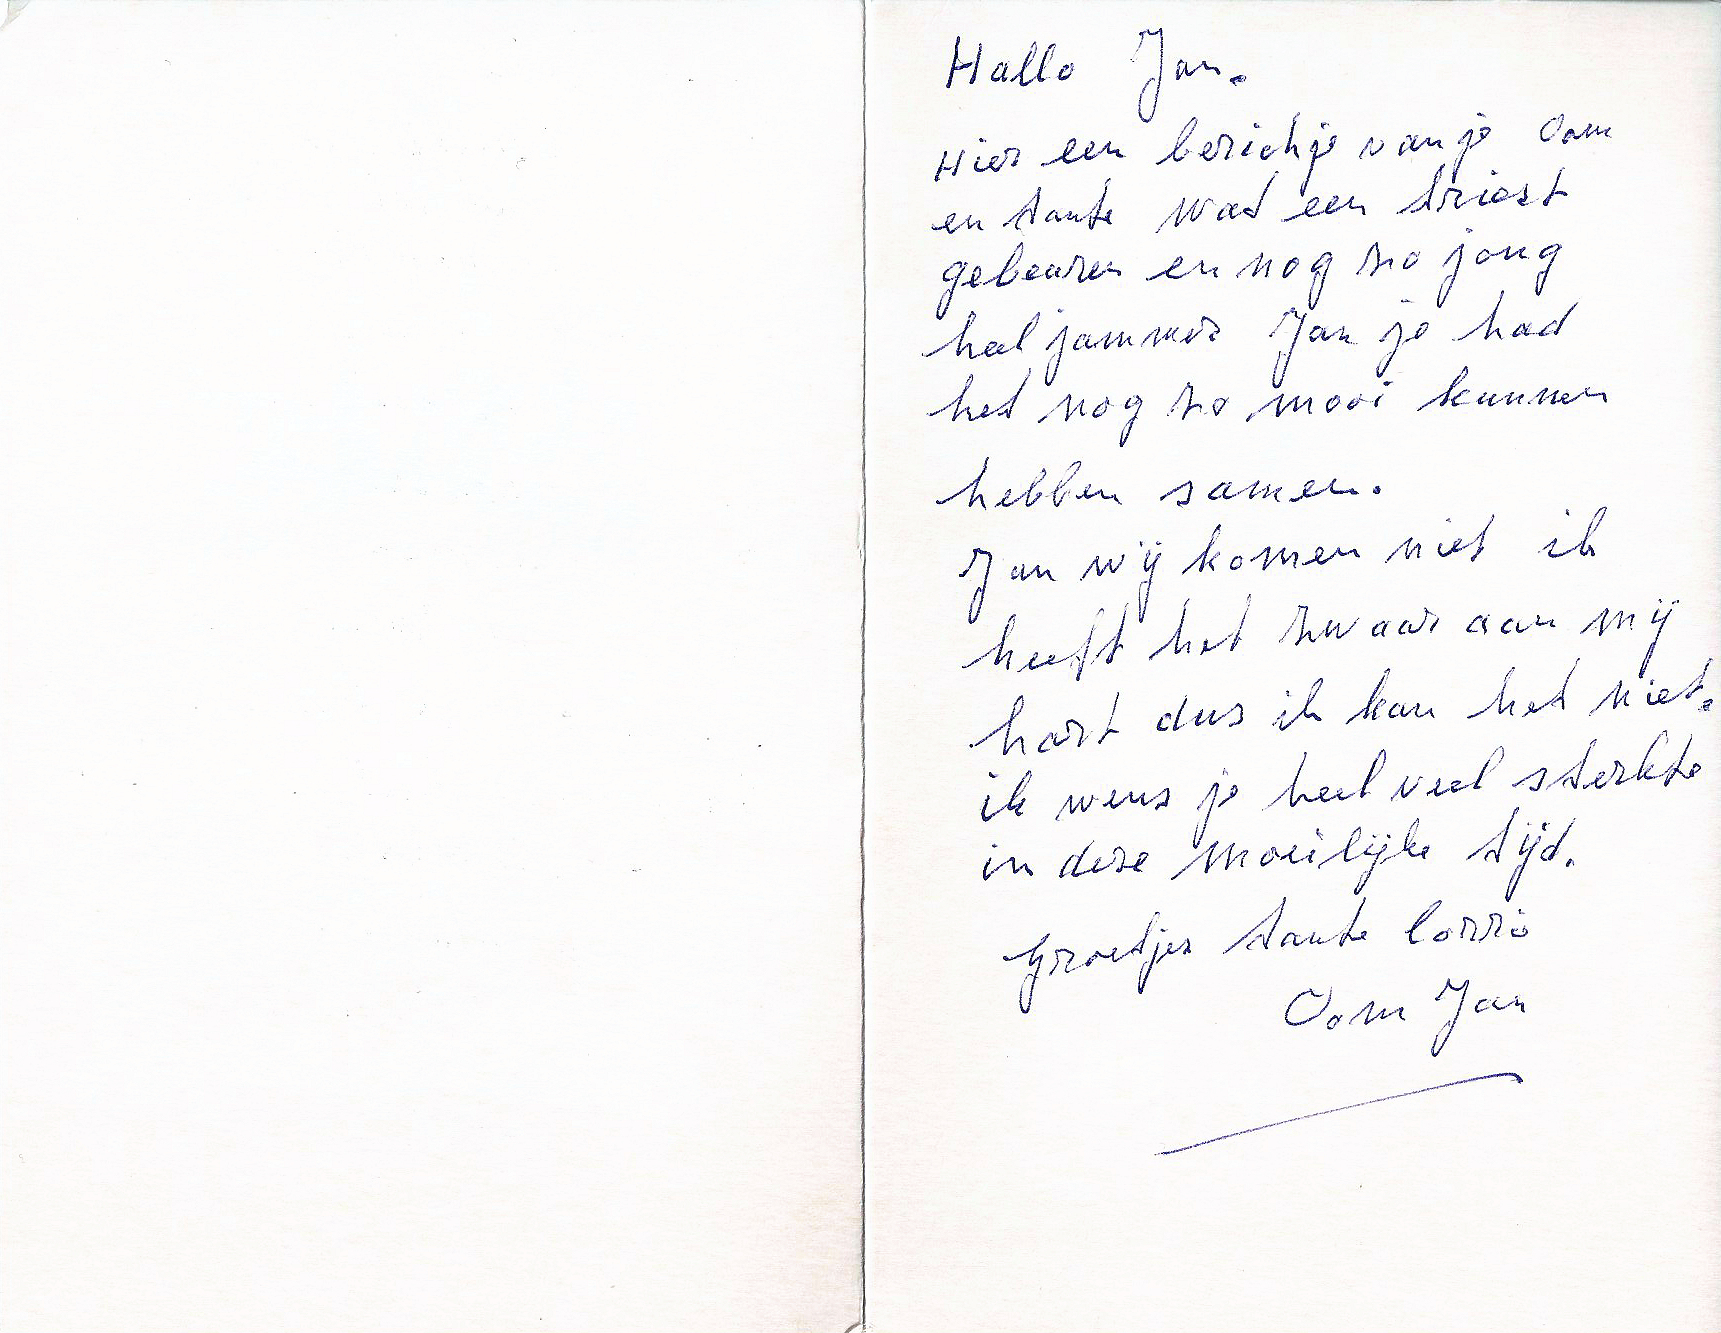 Hallo Jan.
Hier een berichje van je Oom
en tante wat een triest
gebeuren en nog zo jong
heel jammer Jan je had
het nog zo mooi kunnen
hebben samen.
Jan wij komen niet ik
heeft het zwaar aan mij
hart dus ik kan het niet.
ik wens je heel veel sterkte
in deze moeilijke tijd.
Groetjes tante Corrie
Oom Jan